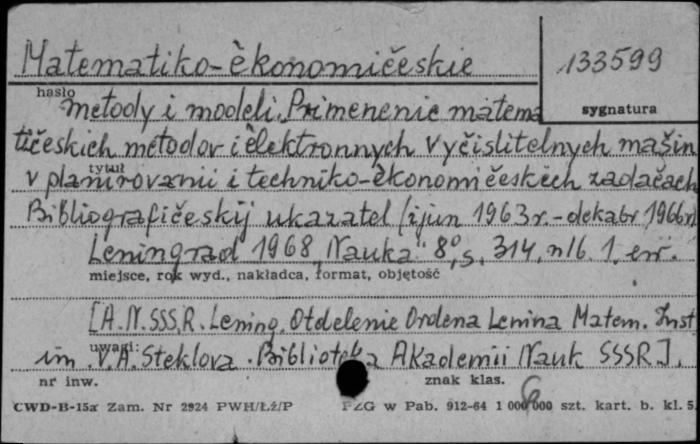 Matematiko-èkonomičeskie
133599
hasło
sygnatura
metody i modeli. Primenenie matema
tičeskich metodov i èlektronnych vyčislitelnych mašin
tytuł
v planirovanii i techniko-èkonomičeskich zadačach
Bibliografičeskij ukazatel (ijun 1963 r. - dekabr 1966 r.)
Leningrad 1968 "Nauka" 8°, s. 314, nlb. 1, err.
miejsce, rok wyd., nakładca, format, objętość
[A.N. SSSR. Lening. Otdelenie Ordena Lenina Matem. Inst
uwagi:
im. V.A. Steklova. Biblioteka Akademii Nauk SSSR].
nr inw.
znak klas.
CWD-B-15a Zam. Nr 2924 PWH/Łź/P PZG w Pab. 912-64 1 000 000 szt. kart. b. kl. 5.